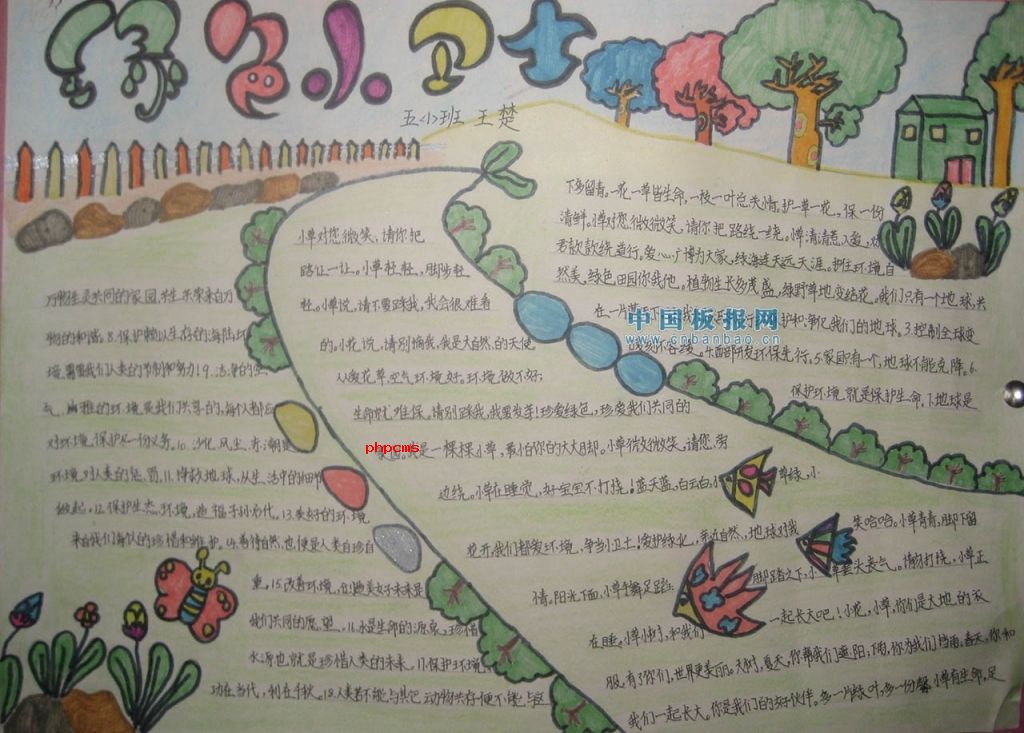 绿色小卫士
五小班 王楚
小草对您微微笑、请你把
路让一让。小草轻轻,脚步轻
轻。小草说,请不要踩我,我会很难看
的。小花说,请别摘我,我是大自然的天使
从爱花草空气环境好。环境做不好;
生命就难保。请别踩我,我要发芽!珍爱绿色,珍爱我们共同的
家园。我是一棵棵小草,最怕你的大大目却。小草微微微笑。请您旁
边绕。小草在睡觉,好宝宝不打挠!蓝天蓝,白云白,小草绿,小
花开,我们都爱环境。争当小卫士!爱护绿化,亲近自然,地球对我笑哈哈。小草青青,脚下留
情。阳光下面,小草手舞足蹈;脚踏之下,小草垂头丧气。请勿打挠,小草正
在睡。小草小树,和我们一起长大吧!小花,小草,你们是大地的衣
服,有了你们,世界更美丽。大树,夏天,你帮我们遮阳,下雨,你为我们挡雨。春天,你和
我们一起长大。你是我们的好伙伴。多一片绿叶,多一份馨。小草有生命,足
下多留青。一花一草皆生命,一枝一叶总关情。护一草一花。保一份
清鲜。小草对您微微笑,请你把路绕一绕。小草清清惹人爱,
君款款绕道行。爱心广博为大家,绿海连天远天涯。把住环境自
然美,绿色田园你我他。植物生长多茂盛,绿野草地变结花。我们只有一个地球,共
在一片蓝天下。争化我们的地球。3.控制全球变
4.西部开发环保先行。5.家园有一个,地球不能克隆。6.
保护环境就是保护生命。7.地球是
万物生灵共同的家园,共生共荣来自万
物的和谐。8.保护赖以生存的海陆环
境,需要我们人类的节制和努力!9.洁净的空
气、幽雅的环境是我们共享的,每个人都应
对环境保护尽一份义务。10.沙化、风尘、赤潮是
环境对人类的惩罚。11.净款地球,从生活中的细节
做起。12.保护生态环境,造福子孙后代。13.美好的环境
来自我们每队的珍惜和维护。14.善待自然,也便是人类自珍自
重。15.改善环境,创造美好未来是
我们共同的愿望。16.水是生命的源泉,珍惜
水源也就是珍惜人类的未来。17.保护环境
功在当代,利在千秋。18.人类若不能与其它动物共存,便不能与这
中国板报网
www.cnbanbao.cn
phpcms